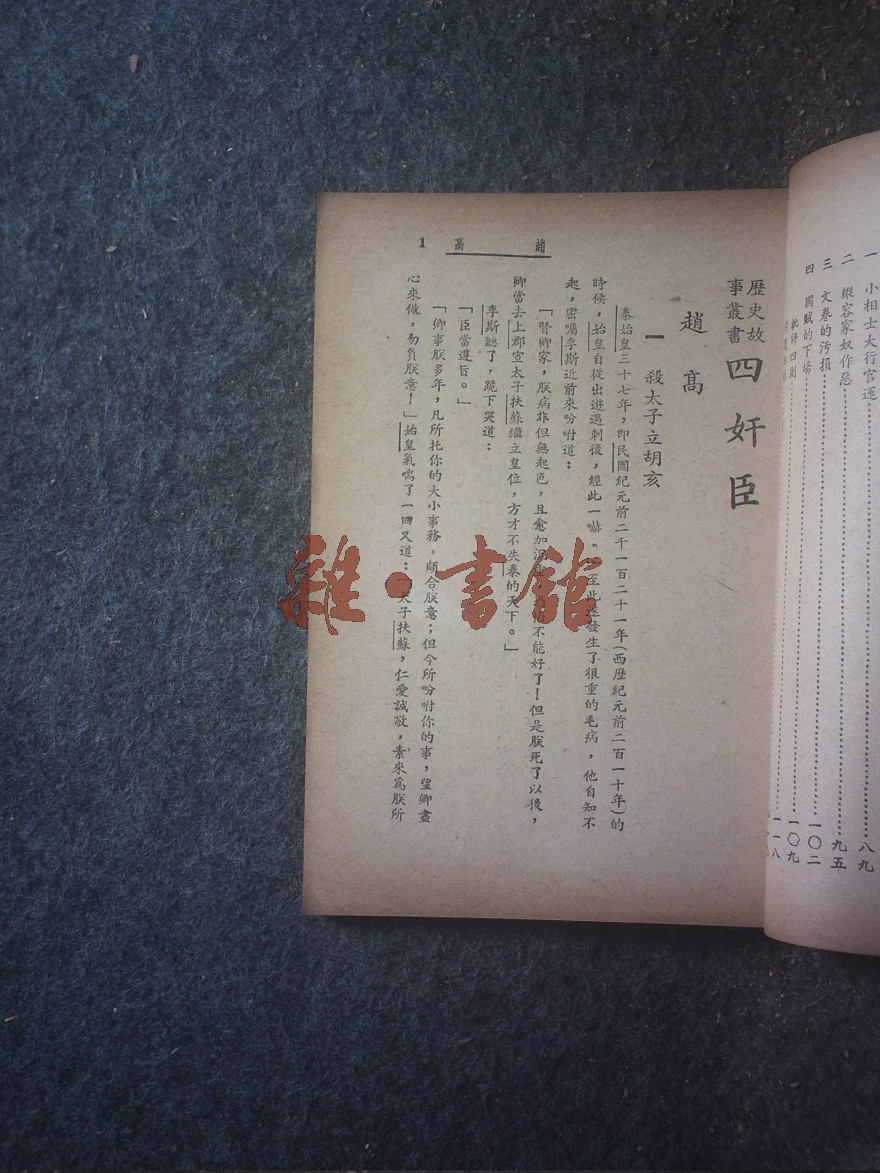 一　小相士大行官運……八九
二　縱容家奴作惡……九五
三　文卷的污損……一〇二
四　國賊的下場……一〇九
批評四則……一一八
歷史故事叢書　四奸臣
趙高
一　殺太子立胡亥
秦始皇三十七年，即民國紀元前二千一百二十一年(西歷紀元前二百一十年)的
時候，始皇自從出遊遇刺後，經此一嚇，至此遂發生了很重的毛病，他自知不
起，密囑李斯近前來吩咐道：
「賢卿家，朕病非但無起色，且愈加沉不能好了！但是朕死了以後，
卿當去上郡宣太子扶蘇繼立皇位，方才不失秦的天下。」
李斯聽了，跪下哭道：
「臣當遵旨。」
「卿事朕多年，凡所托你的大小事務，頗合朕意；但今所吩咐你的事，望卿盡
心來做，勿負朕意！」始皇氣喘了一回又道：「太子扶蘇，仁愛誠敬，素來爲朕所
趙高　1
雜·書館